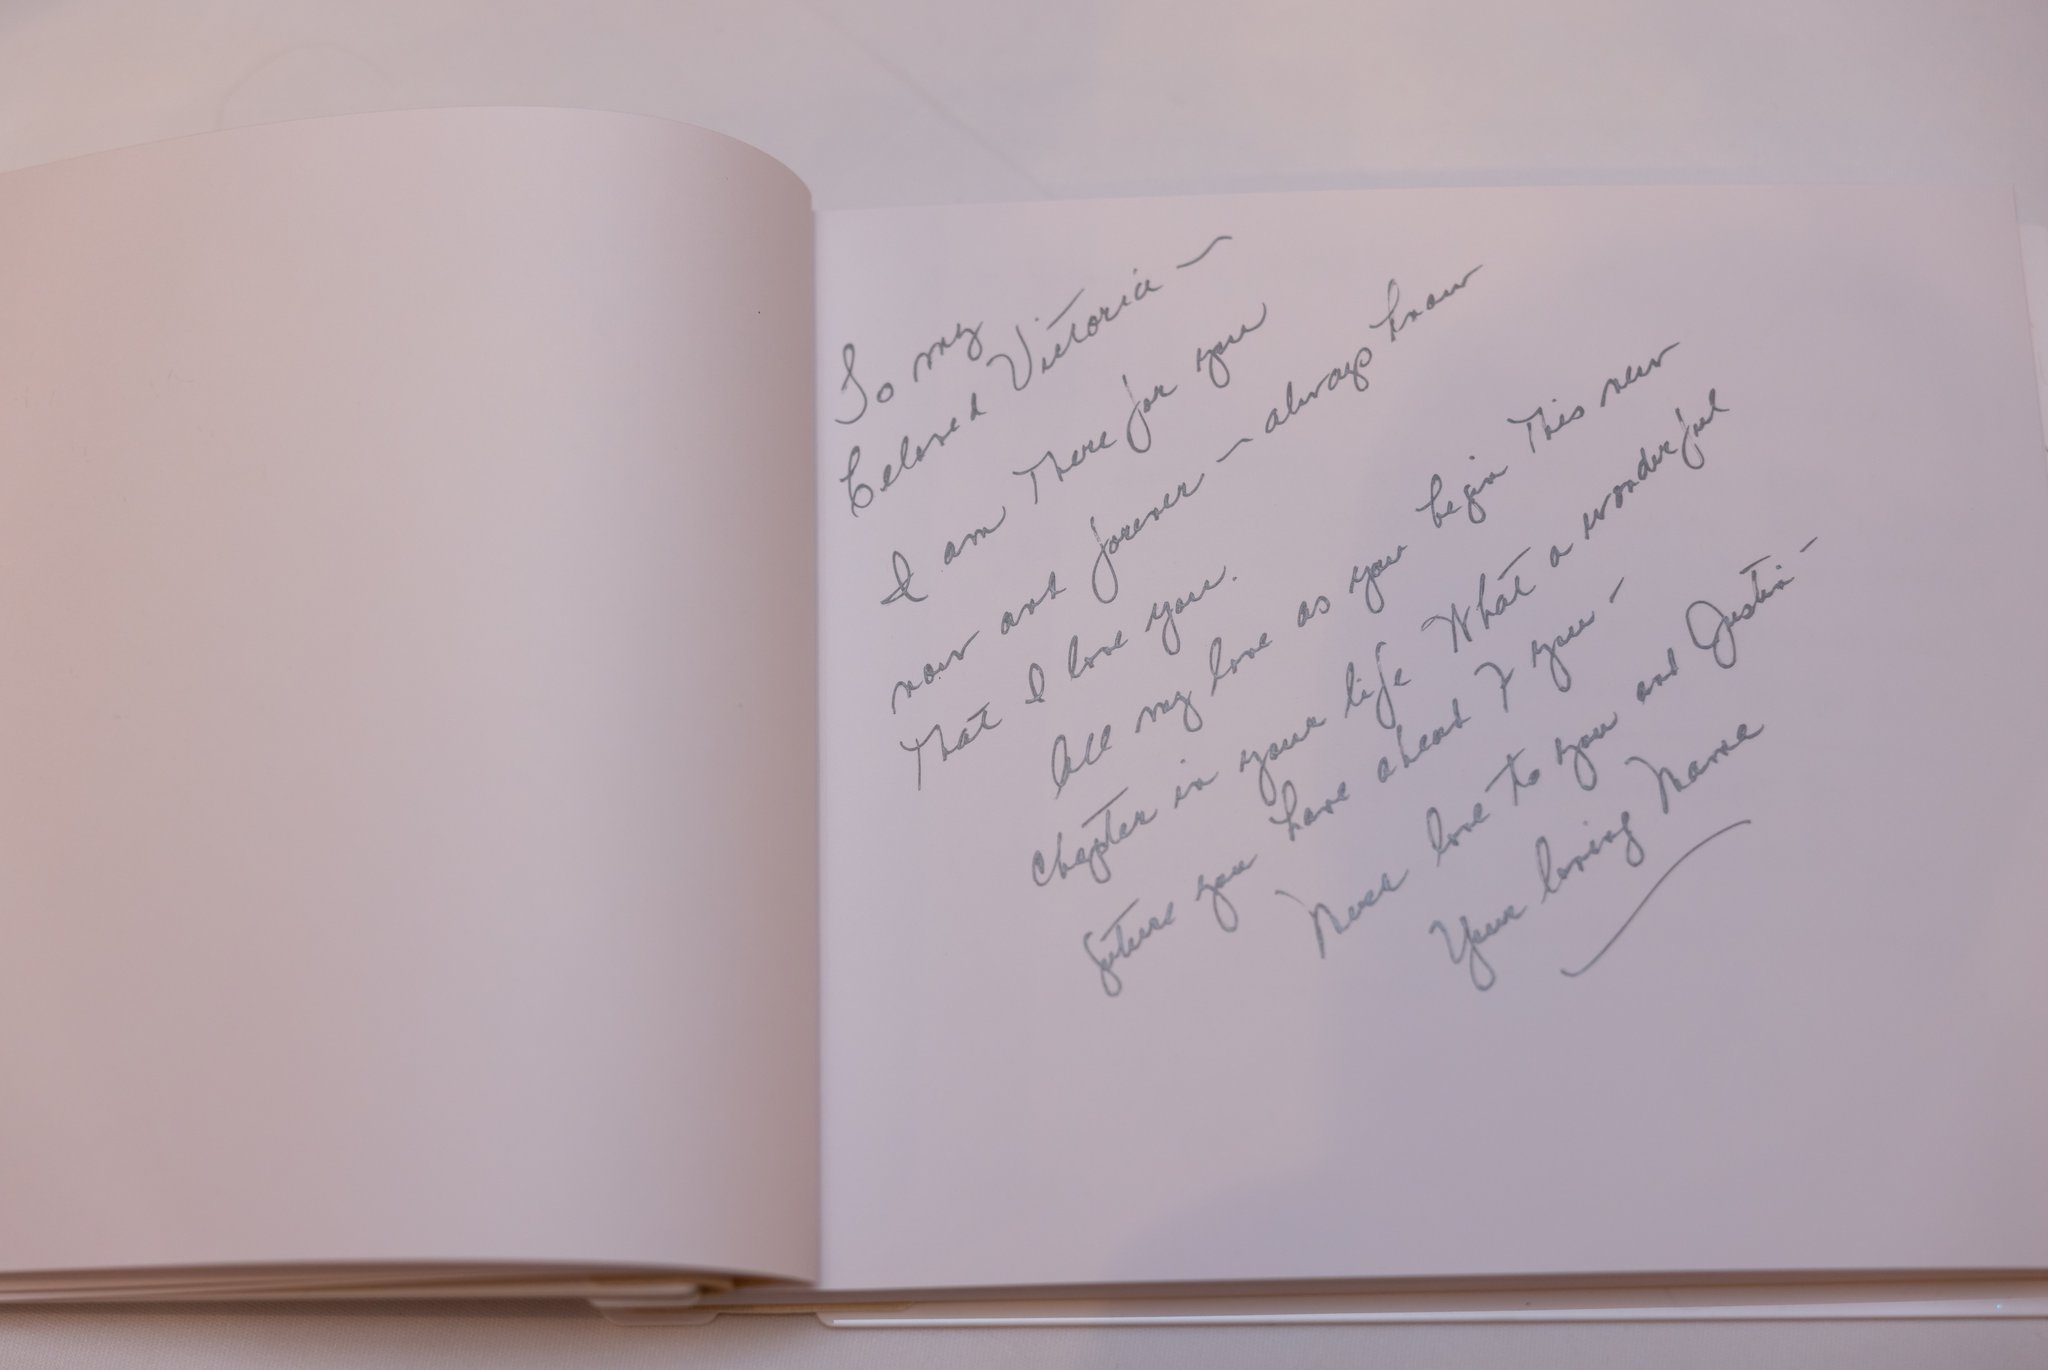 To my
beloved Victoria ~
I am There for you
now and forever ~ always know
That I love you.
All my love as you begin This new
chapter in your life What a wonderful
future you have ahead of you -
Much love to you and Justin -
Your loving